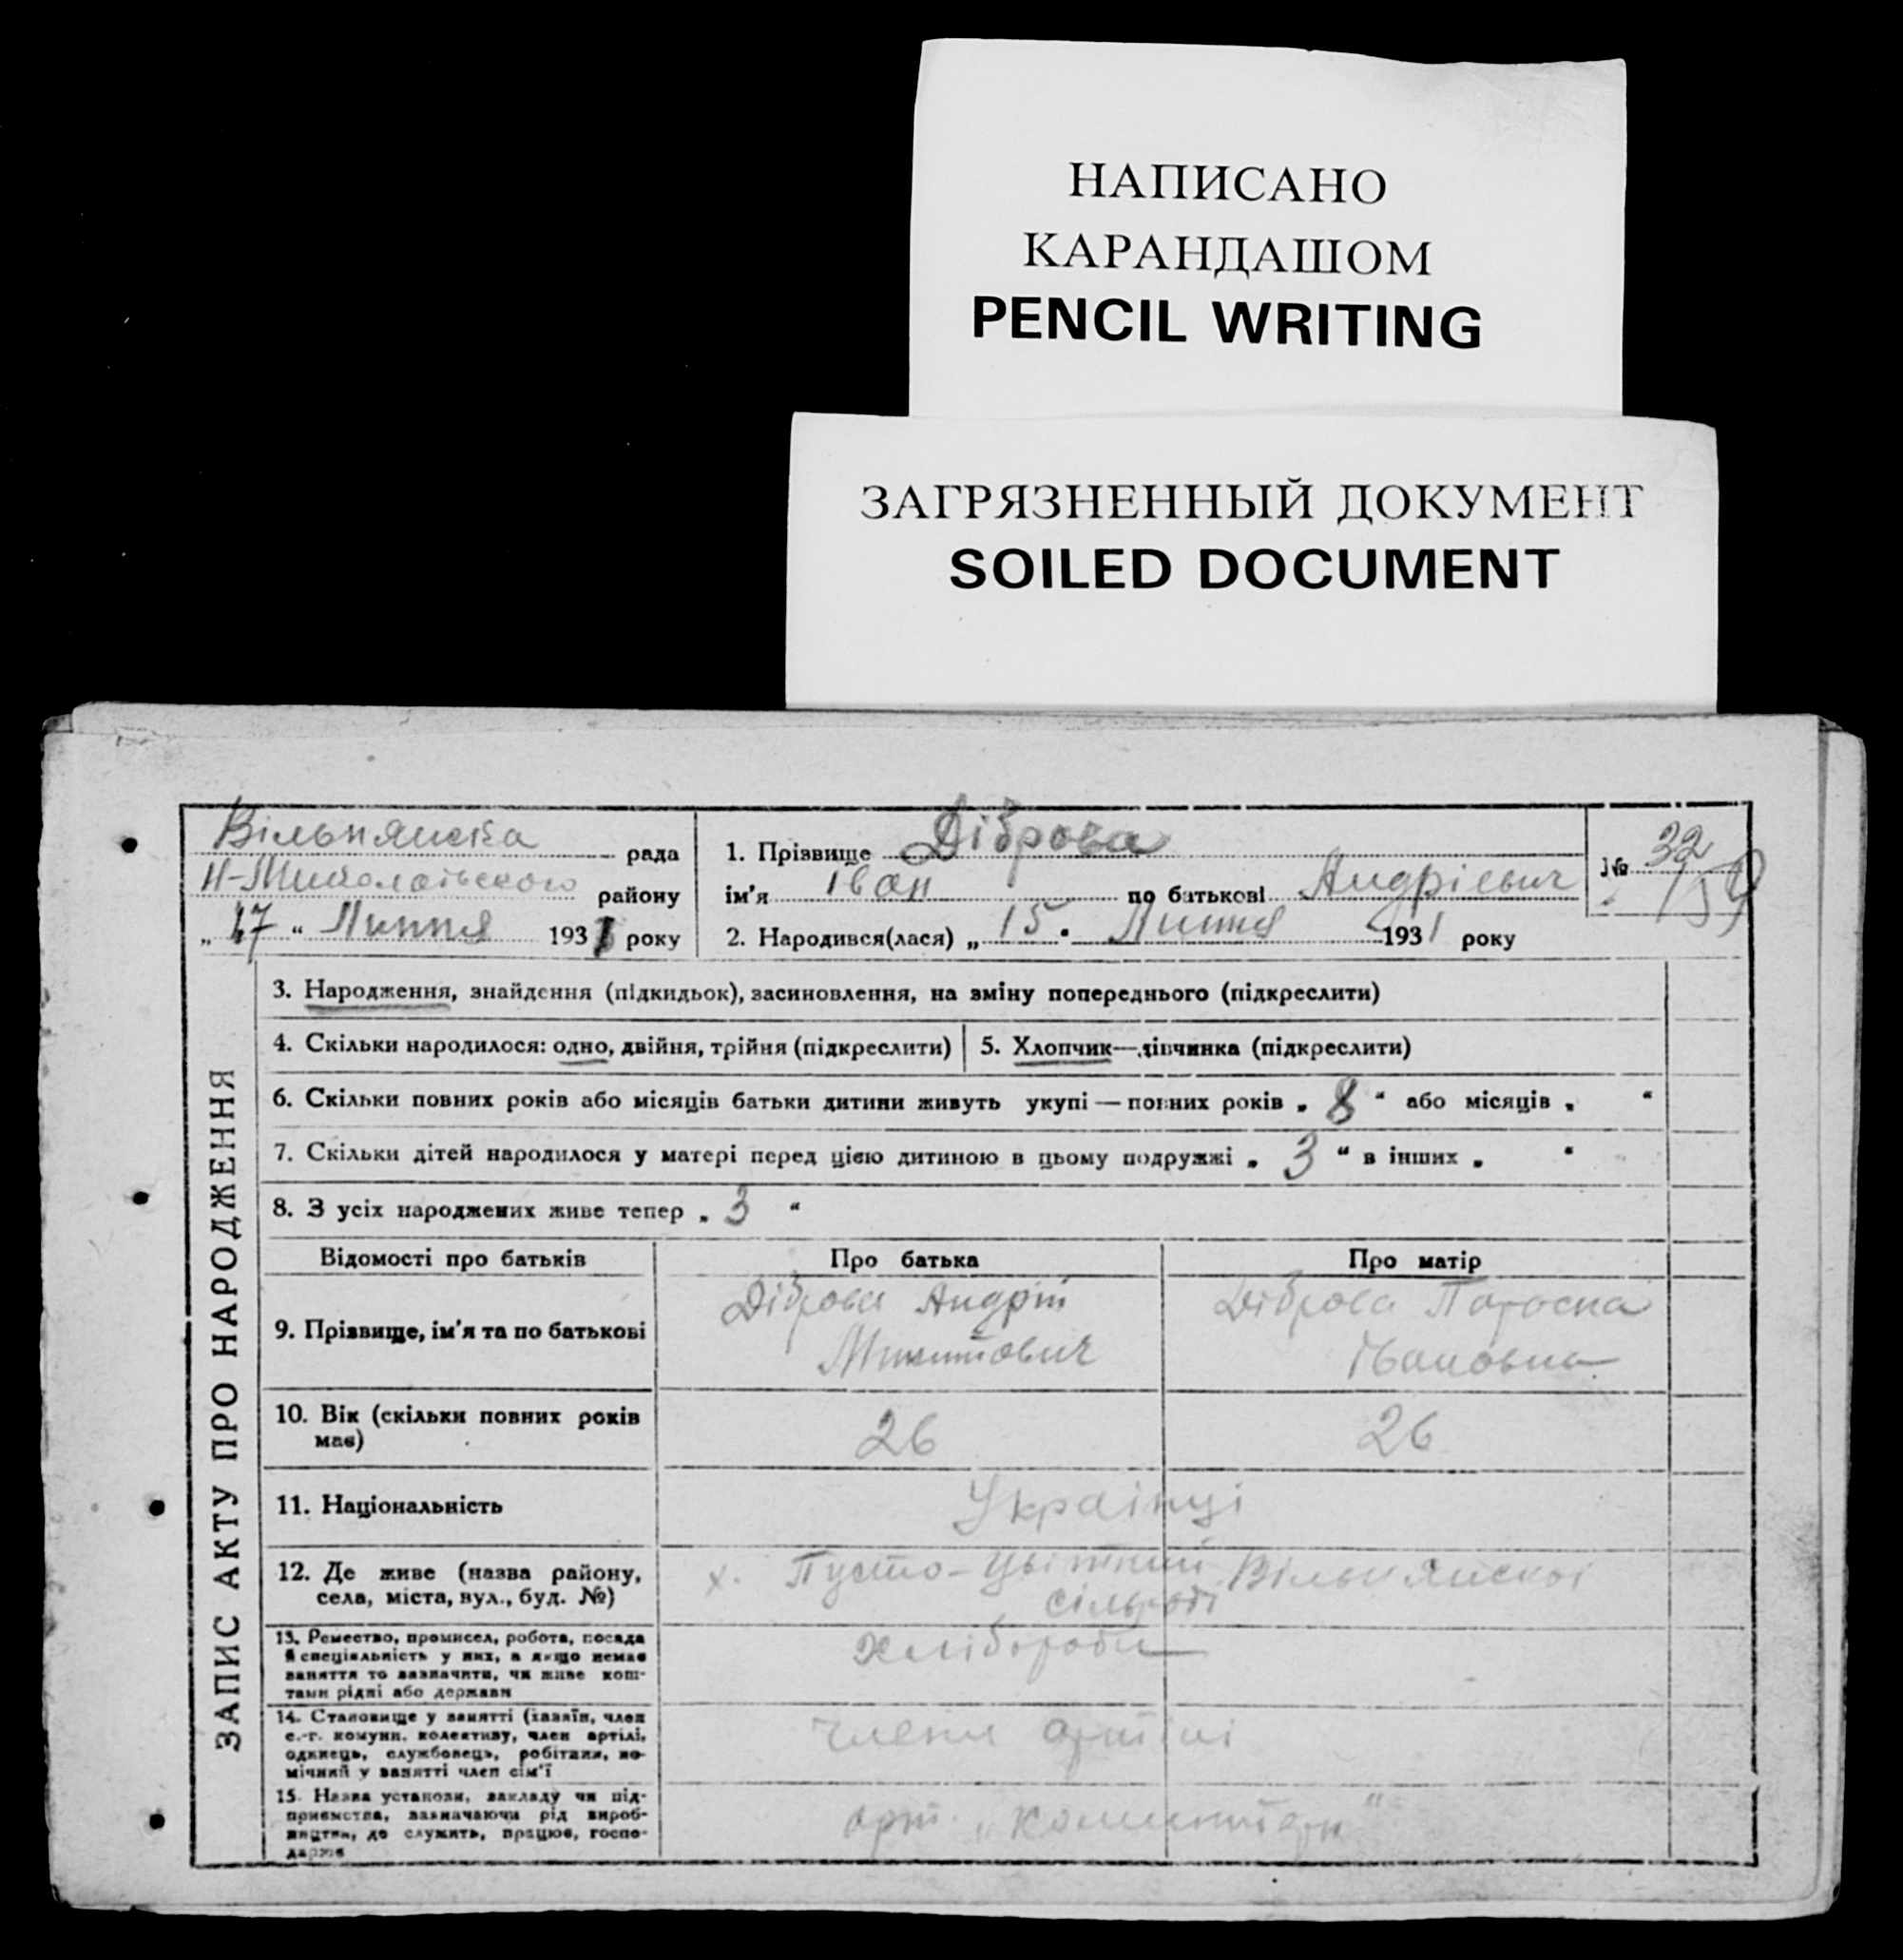 НАПИСАНО
КАРАНДАШОМ
PENCIL WRITING
ЗАГРЯЗНЕННЫЙ ДОКУМЕНТ
SOILED DOCUMENT
ЗАПИС АКТУ ПРО НАРОДЖЕННЯ
Вільнянська рада
Н-Миколаївського району
„ 17 “ Липня 1931 року
1. Прізвище Діброва
ім'я Іван по батькові Андрієвич
2. Народився(лася) „ 15 . Липня 1931 року
№ 32
3. Народження, знайдення (підкидьок), засиновлення, на зміну попереднього (підкреслити)
4. Скільки народилося: одно, двійня, трійня (підкреслити)
5. Хлопчик—дівчинка (підкреслити)
6. Скільки повних років або місяців батьки дитини живуть укупі — повних років „ 8 “ або місяців „ “
7. Скільки дітей народилося у матері перед цією дитиною в цьому подружжі „ 3 “ в інших „ “
8. З усіх народжених живе тепер „ 3 “
Відомості про батьків Про батька Про матір
9. Прізвище, ім'я та по батькові
Діброва Андрій
Микитович
Діброва
Івановна
10. Вік (скільки повних років
має)
26 26
11. Національність
Українці
12. Де живе (назва району,
села, міста, вул., буд. №)
х. Пусто-Цвітний Вільнянської
сільради
13. Ремество, промисел, робота, посада
й спеціяльність у них, а якщо немає
заняття то зазначити, чи живе кош-
тами рідні або держави
Хлібороби
14. Становище у занятті (хазяїн, член
с.-г. комуни, колективу, член артілі,
одинець, службовець, робітник, по-
мічний у занятті член сім'ї
члени артілі
15. Назва установи, закладу чи під-
приємства, зазначаючи рід вироб-
ництва, де служить, працює, госпо-
дарює
арт.